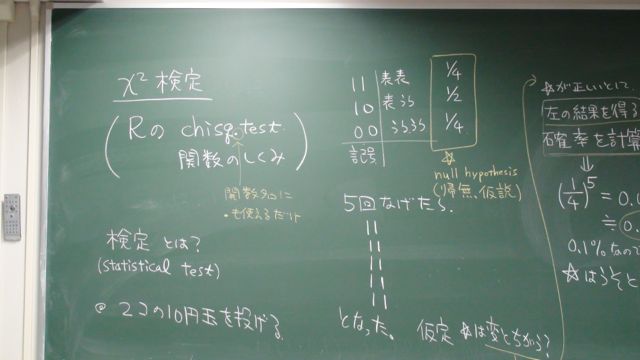 χ² 検定
(Rの chisq.test
関数のしくみ)
関数名に
・も使えるだけ
検定 とは?
(statistical test)
@ 2コの10円玉を投げる
11 表表 1/4
10 表うら 1/2
00 うらうら 1/4
記号
☆
null hypothesis
(帰無仮説)
5回なげたら、
11
11
11
11
11
となった。
仮定 ☆は変とちがう?
☆が正しいとして
左の結果を得る
確率を計算
⇓
(1/4)⁵ = 0.0
≒ 0.
0.1%なので
☆はうそと